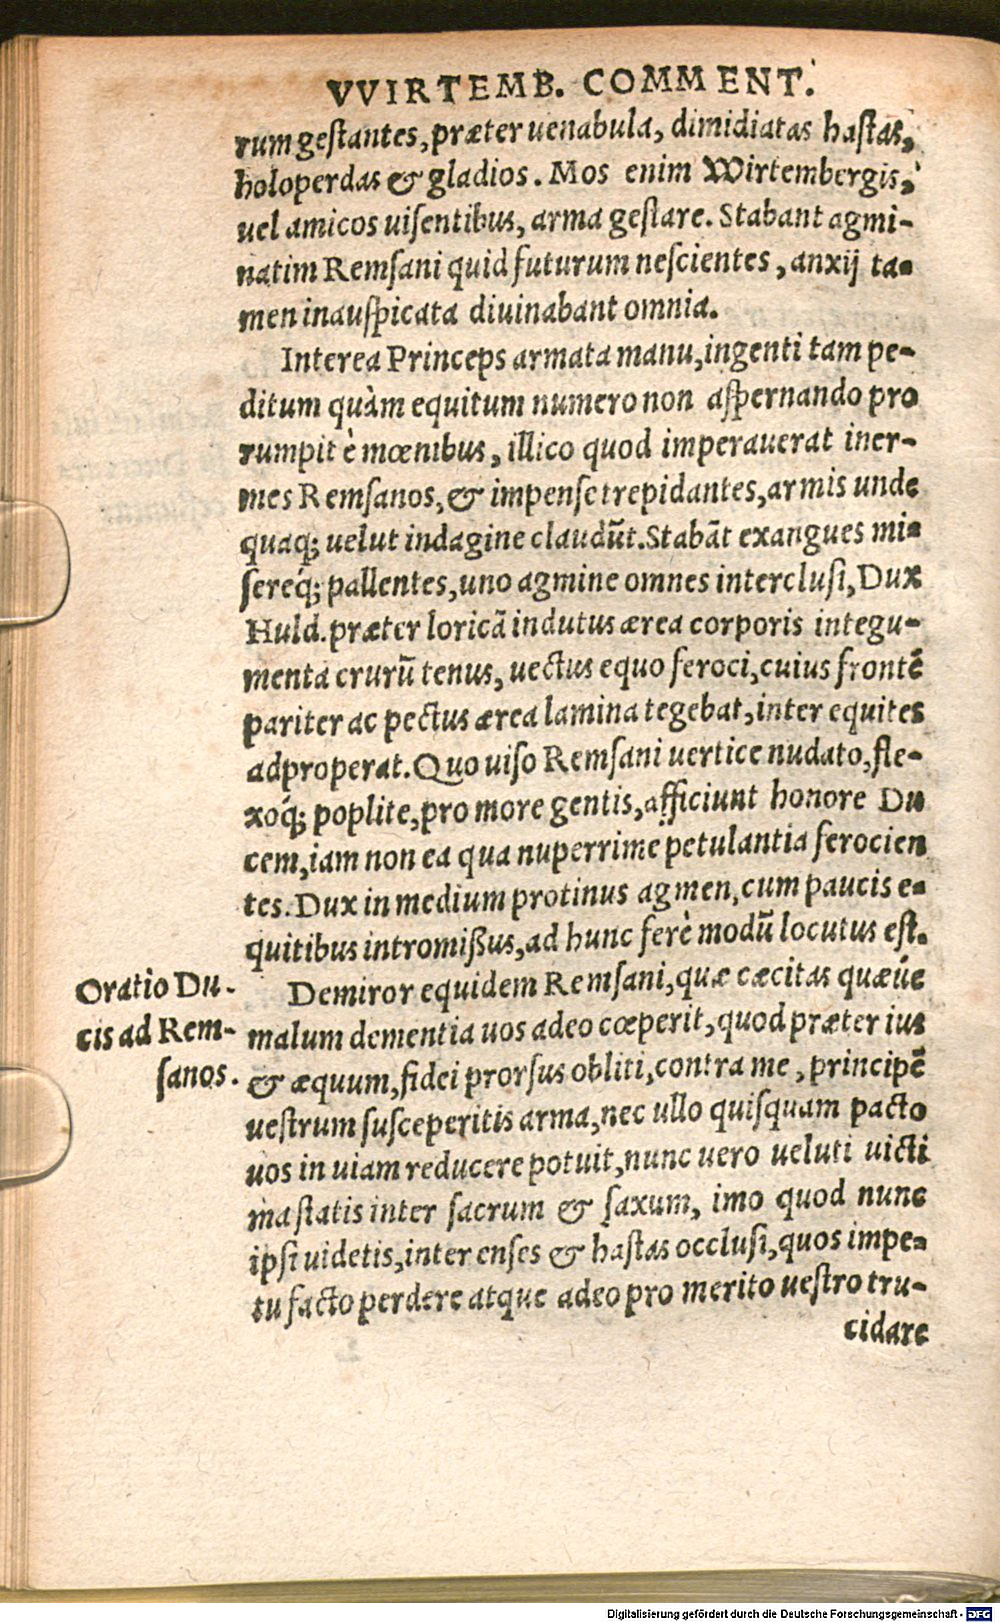 VVIRTEMB. COMMENT.
rum gestantes, præter uenabula, dimidiatas hastas,
holoperdas & gladios. Mos enim Wirtembergis,
uel amicos uisentibus, arma gestare. Stabant agmi-
natim Remsani quid futurum nescientes, anxij ta-
men inauspicata diuinabant omnia.
Interea Princeps armata manu, ingenti tam pe-
ditum quàm equitum numero non aspernando pro
rumpit è mœnibus, illico quod imperauerat iner-
mes Remsanos, & impense trepidantes, armis unde
quaq; uelut indagine claudũt. Stabãt exangues mi-
sereq́; pallentes, uno agmine omnes interclusi, Dux
Huld. præter loricã indutus ærea corporis integu-
menta crurũ tenus, uectus equo feroci, cuius frontẽ
pariter ac pectus ærea lamina tegebat, inter equites
adproperat. Quo uiso Remsani uertice nudato, fle-
xoq́; poplite, pro more gentis, afficiunt honore Du
cem, iam non ea qua nuperrime petulantia ferocien
tes. Dux in medium protinus agmen, cum paucis e-
quitibus intromißus, ad hunc ferè modũ locutus est.
Oratio Du-
cis ad Rem-
sanos.
Demiror equidem Remsani, quæ cæcitas quæúe
malum dementia uos adeo cœperit, quod præter ius
& æquum, fidei prorsus obliti, contra me, principẽ
uestrum susceperitis arma, nec ullo quisquam pacto
uos in uiam reducere potuit, nunc uero ueluti uicti
ma statis inter sacrum & saxum, imo quod nunc
ipsi uidetis, inter enses & hastas occlusi, quos impe-
tu facto perdere atque adeo pro merito uestro tru-
cidare
Digitalisierung gefördert durch die Deutsche Forschungsgemeinschaft - DFG